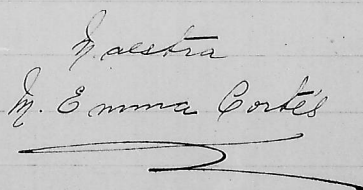 Maestra
M. Emma Cortés